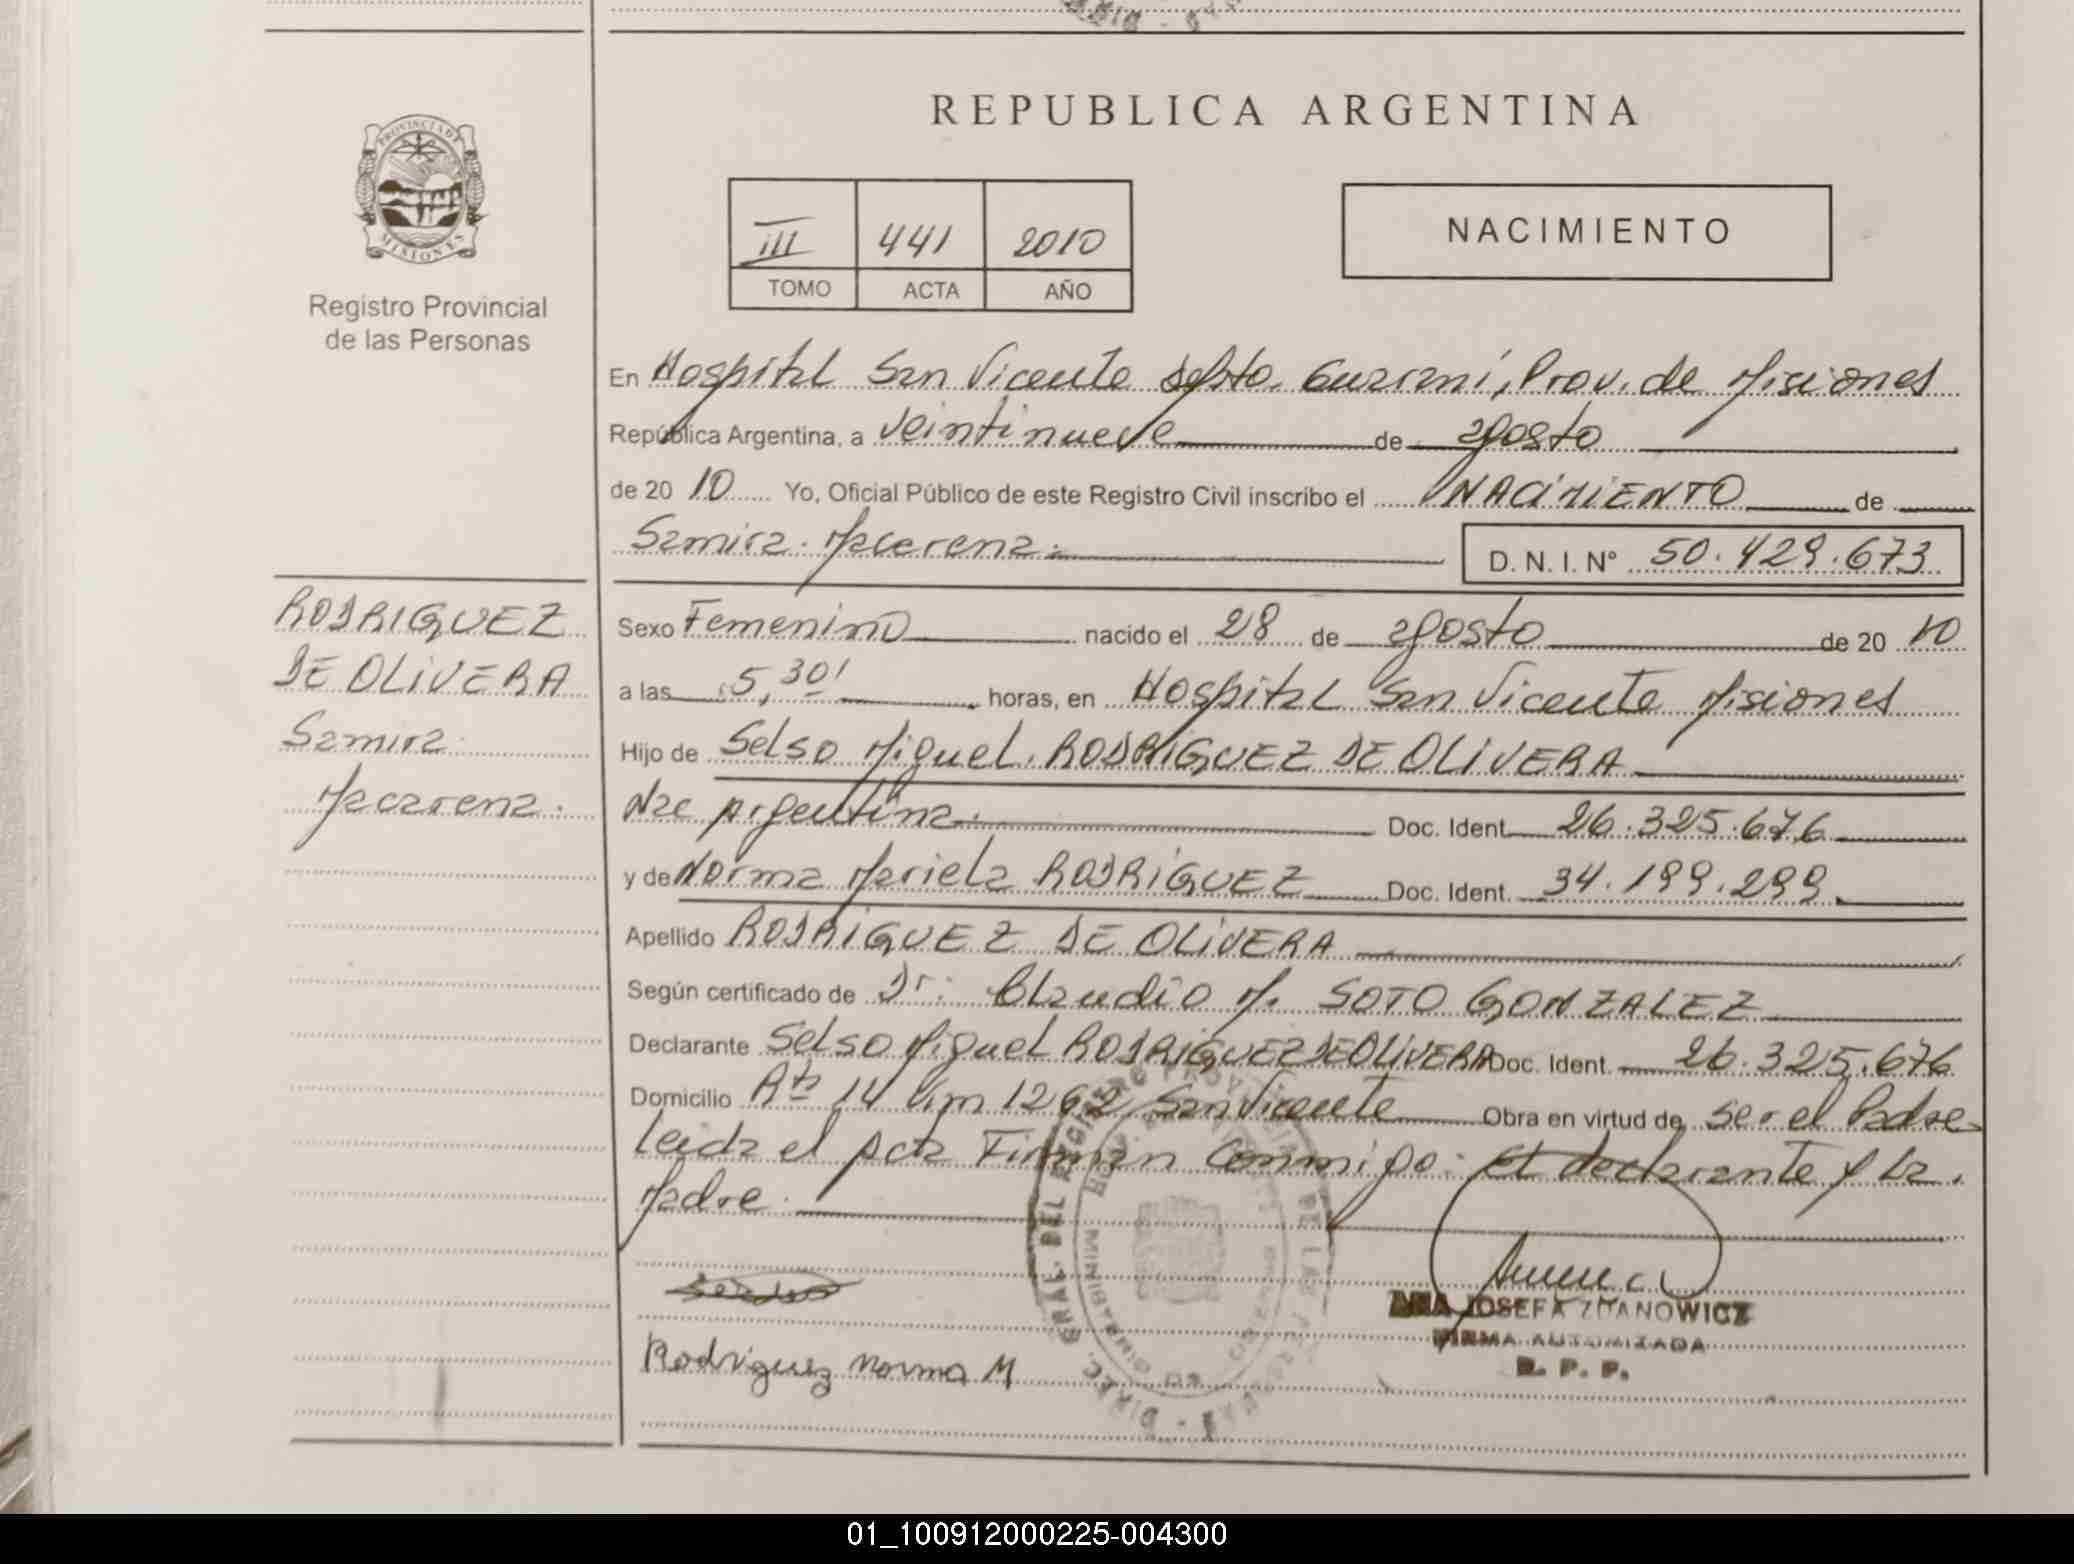 REPUBLICA ARGENTINA
PROVINCIA DE
MISIONES
Registro Provincial
de las Personas
III 441 2010
TOMO ACTA AÑO
NACIMIENTO
En Hospital San Vicente Dpto. Guarani, Prov. de Misiones
República Argentina, a veintinueve de agosto
de 20 10 Yo, Oficial Público de este Registro Civil inscribo el NACIMIENTO de
Samira Macarena.
D. N. I. Nº 50.429.673
RODRIGUEZ
DE OLIVERA
Samira
Macarena.
Sexo Femenino nacido el 28 de agosto de 20 10
a las 5,30' horas, en Hospital San Vicente Misiones
Hijo de Selso Miguel RODRIGUEZ DE OLIVERA
Nac Argentina. Doc. Ident. 26.325.676
y de Norma Mariela RODRIGUEZ Doc. Ident. 34.199.299.
Apellido RODRIGUEZ DE OLIVERA
Según certificado de Dr. Claudio M. SOTO GONZALEZ
Declarante Selso Miguel RODRIGUEZ DE OLIVERA Doc. Ident. 26.325.676
Domicilio Rta 14 Km 1262 San Vicente Obra en virtud de ser el Padre
Leida el Acta Firman Conmigo: el declarante y La
Madre.
ANA JOSEFA ZDANOWICZ
FIRMA AUTORIZADA
R. P. P.
Rodriguez Norma M
DIREC. GRAL. DEL REGISTRO PROVINCIAL DE LAS PERSONAS
01_100912000225-004300